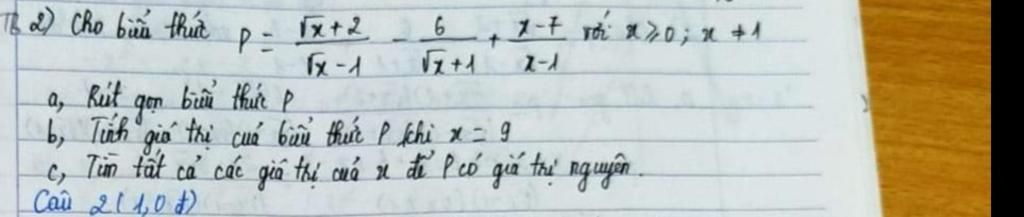 2) Cho biểu thức P = (√x + 2)/(√x - 1) - 6/(√x + 1) + (x - 7)/(x - 1) với x ≥ 0 ; x ≠ 1
a, Rút gọn biểu thức P
b, Tính giá thị cuả biểu thức P khi x = 9
c, Tìm tất cả các giá thị cuả x để P có giá thị nguyên.
Câu 2 (1,0 đ)